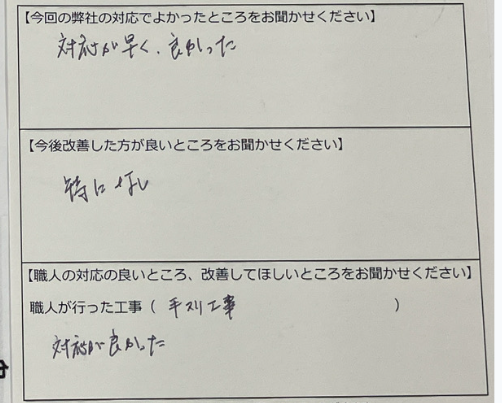 【今回の弊社の対応でよかったところをお聞かせください】
対応が早く、良かった
【今後改善した方が良いところをお聞かせください】
特になし
【職人の対応の良いところ、改善してほしいところをお聞かせください】
職人が行った工事（手スリ工事）
対応が良かった